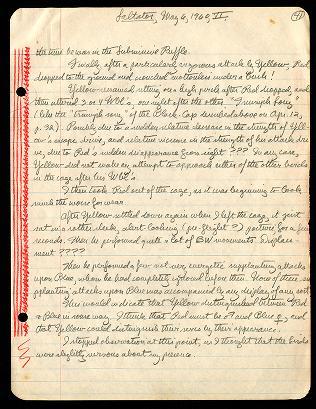 Saltator, May 6, 1960, II.
the time he was in the Submissive Ruffle.
Finally, after a particularly vigorous attack by Yellow, Red
dropped to the ground and crouched motionless under a bush!
Yellow remained sitting on a high perch after Red dropped, and
then uttered 3 or 4 WBL's, one right after the other. "Triumph Song"
(like the "triumph song" of the Black-Cap described above on Apr. 12,
p. 32). Possibly due to a sudden relative decrease in the strength of Yell-
ow's escape drive, and relative increase in the strength of his attack dri-
ve, due to Red's sudden disappearance from sight ??? In any case,
Yellow did not make an attempt to approach either of the other birds
in the cage after his WBL's.
I then took Red out of the cage, as it was beginning to look
much the worse for wear.
After Yellow settled down again when I left the cage, it first
sat in a rather sleek, alert looking (pre-flight?) posture for a few
seconds. Then he performed quite a lot of BW movements. Displace-
ment ????
Then he performed a few not very energetic supplanting attacks
upon Blue, whom he had completely ignored before then. None of these su-
pplanting attacks upon Blue was accompanied by any display of any sort.
This would indicate that Yellow distinguished between Red
& Blue in some way. I think that Red must be ♂ and Blue ♀, and
that Yellow could distinguish their sexes by their appearance.
I stopped observation at this point, as I thought that the birds
were slightly nervous about my presence.